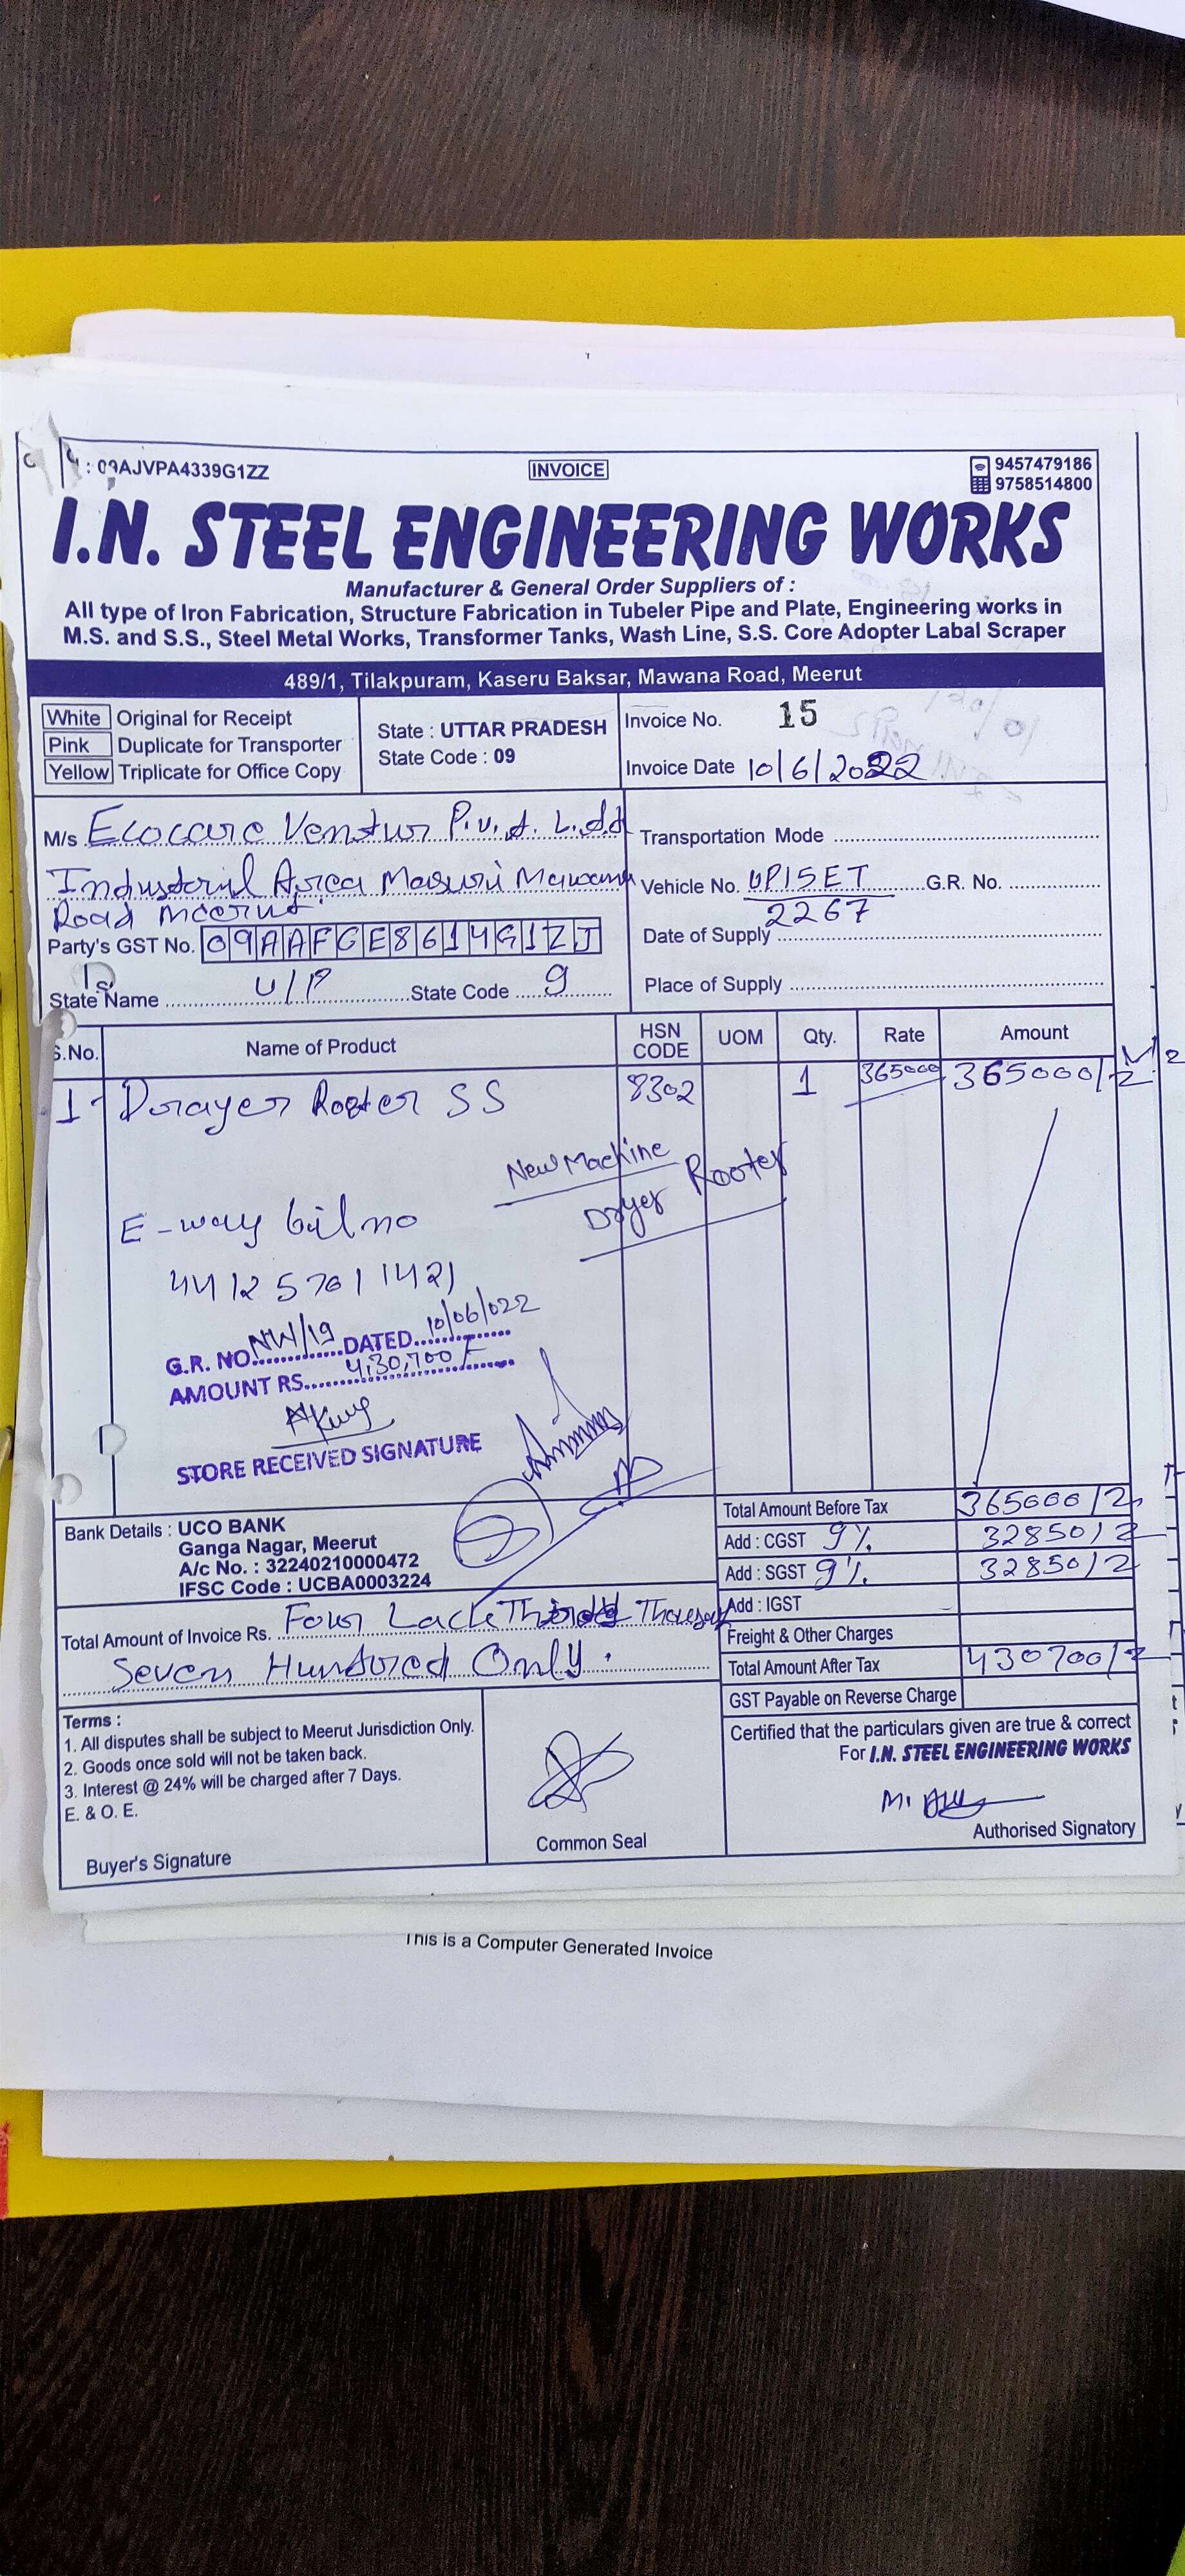 : 09AJVPA4339G1ZZ
INVOICE
9457479186
9758514800
I.N. STEEL ENGINEERING WORKS
Manufacturer & General Order Suppliers of :
All type of Iron Fabrication, Structure Fabrication in Tubeler Pipe and Plate, Engineering works in
M.S. and S.S., Steel Metal Works, Transformer Tanks, Wash Line, S.S. Core Adopter Labal Scraper
489/1, Tilakpuram, Kaseru Baksar, Mawana Road, Meerut
White Original for Receipt
Pink Duplicate for Transporter
Yellow Triplicate for Office Copy
State : UTTAR PRADESH
State Code : 09
Invoice No. 15
Invoice Date 10/6/2022
M/s Ecocare Ventur P.v.t. L.t.d
Industoril Area Masuri Mawana
Road Meerut
Party's GST No. 09AAFCE8614G1ZJ
State Name U/P State Code 9
Transportation Mode
Vehicle No. UP15ET G.R. No.
2267
Date of Supply
Place of Supply
S.No. Name of Product HSN CODE UOM Qty. Rate Amount
1 Drayer Rooter SS 8302 1 365000 365000/
New Machine
Dryer Rooter
E-way bil no
441257011421
G.R. NO. NW/19 DATED 10/06/022
AMOUNT RS. 4,30,700
STORE RECEIVED SIGNATURE
Bank Details : UCO BANK
Ganga Nagar, Meerut
A/c No. : 32240210000472
IFSC Code : UCBA0003224
Total Amount Before Tax 365000/
Add : CGST 9% 32850/
Add : SGST 9% 32850/
Add : IGST
Freight & Other Charges
Total Amount After Tax 430700/
GST Payable on Reverse Charge
Total Amount of Invoice Rs. Four Lack
Seven Hundred Only.
Terms :
1. All disputes shall be subject to Meerut Jurisdiction Only.
2. Goods once sold will not be taken back.
3. Interest @ 24% will be charged after 7 Days.
E. & O. E.
Buyer's Signature
Common Seal
Certified that the particulars given are true & correct
For I.N. STEEL ENGINEERING WORKS
Authorised Signatory
This is a Computer Generated Invoice